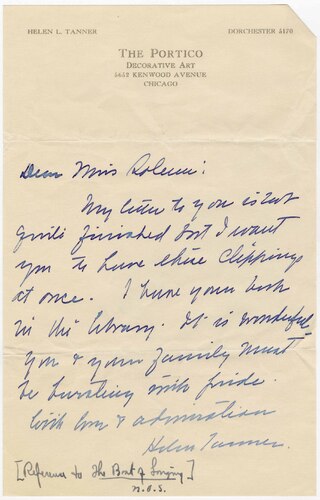 HELEN L. TANNER
DORCHESTER 5170
THE PORTICO
DECORATIVE ART
5652 KENWOOD AVENUE
CHICAGO
Dear Miss
My letter to you is not
quite finished but I want
you to have these clippings
at once. I have your book
in the library. It is wonderful-
you & your family must
be bursting with pride.
With love & admiration
Helen Tanner.
[Reference to The Art of Singing]
N.O.S.